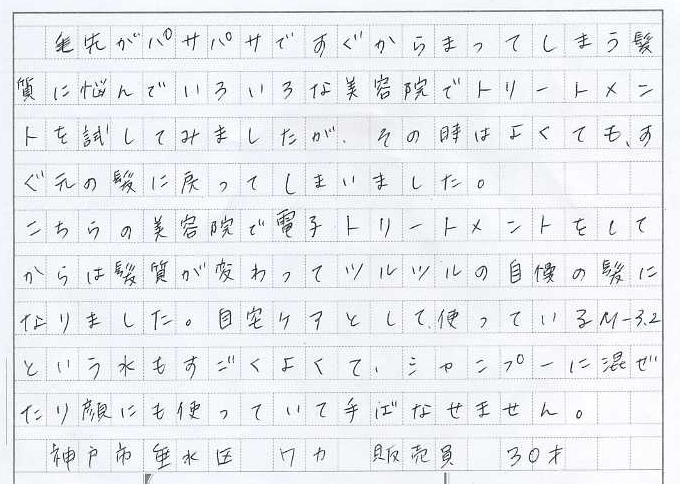 毛先がパサパサですぐからまってしまう髪
質に悩んでいろいろな美容院でトリートメン
トを試してみましたが、その時はよくても、す
ぐ元の髪に戻ってしまいました。
こちらの美容院で電子トリートメントをして
からは髪質が変わってツルツルの自慢の髪に
なりました。自宅ケアとして、使っているM-3.2
という水もすごくよくて、シャンプーに混ぜ
たり顔にも使っていて手ばなせません。
神戸市垂水区 ワカ 販売員 30才